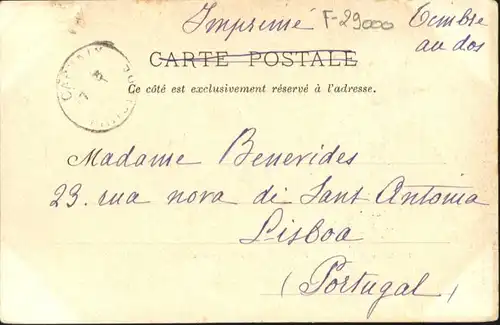 Imprimé F-29000 Timbre
au dos
CARTE POSTALE
Ce côté est exclusivement réservé à l'adresse.
Madame Benevides
23. rua nova de Sant Antonia
Lisboa
(Portugal)